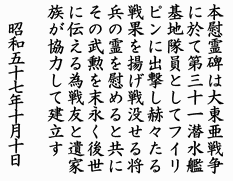 本慰霊碑は大東亜戦争
に於て第三十一潜水艦
基地隊員としてフイリ
ピンに出撃し赫々たる
戦果を揚げ戦没せる将
兵の霊を慰めると共に
その武勲を末永く後世
に伝える為戦友と遺家
族が協力して建立す
昭和五十七年十月十日